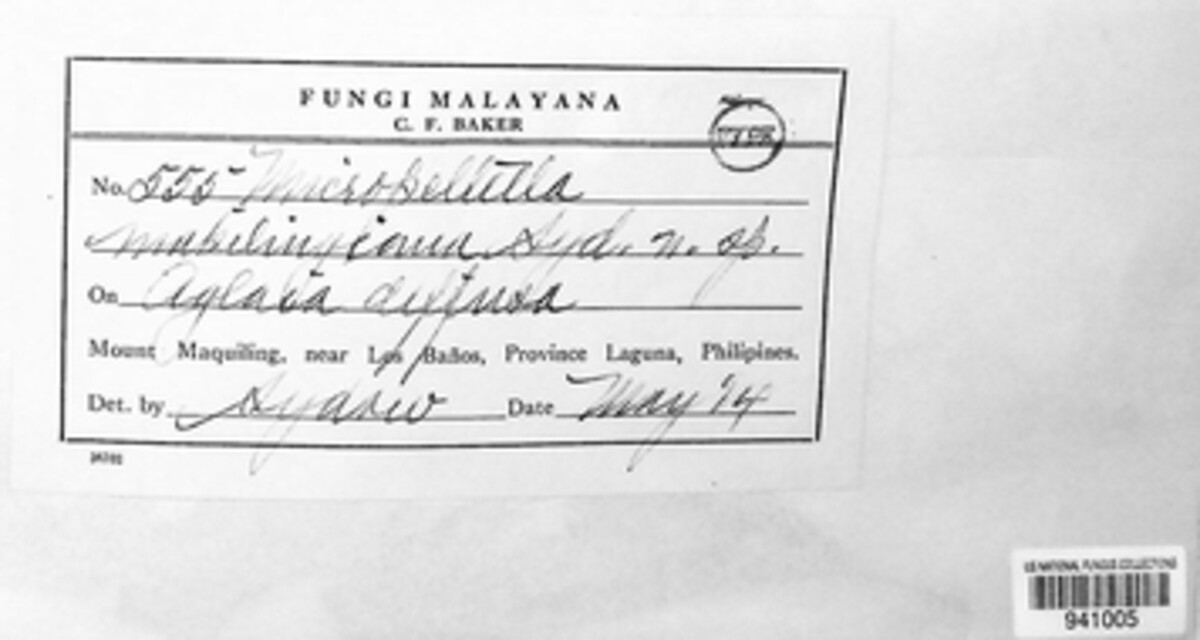 FUNGI MALAYANA
C. F. BAKER
No. 555
Syd. n. sp.
On Aglaia diffusa
Mount Maquiling, near Los Baños, Province Laguna, Philipines.
Det. by Sydow Date May '14
US NATIONAL FUNGUS COLLECTIONS
941005